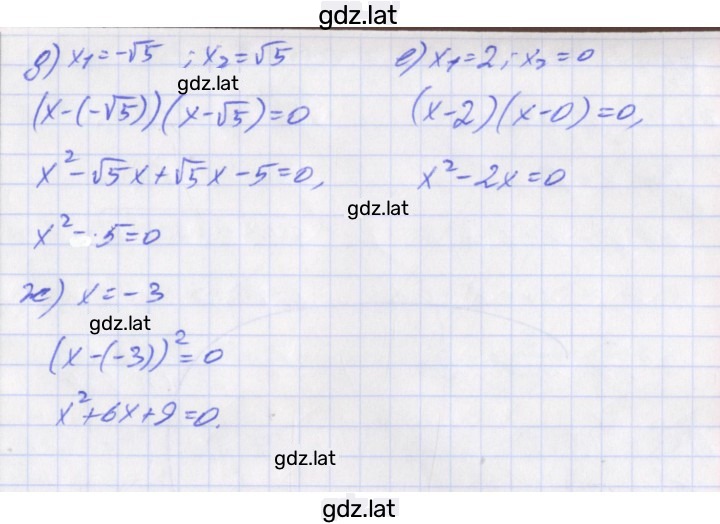 gdz.lat
д) x₁ = -√5 ; x₂ = √5
gdz.lat
(x-(-√5))(x-√5)=0
x² - √5x + √5x - 5 = 0,
x² - 5 = 0
е) x₁ = 2 ; x₂ = 0
(x-2)(x-0)=0,
x² - 2x = 0
gdz.lat
ж) x = -3
gdz.lat
(x-(-3))² = 0
x² + 6x + 9 = 0.
gdz.lat
gdz.lat